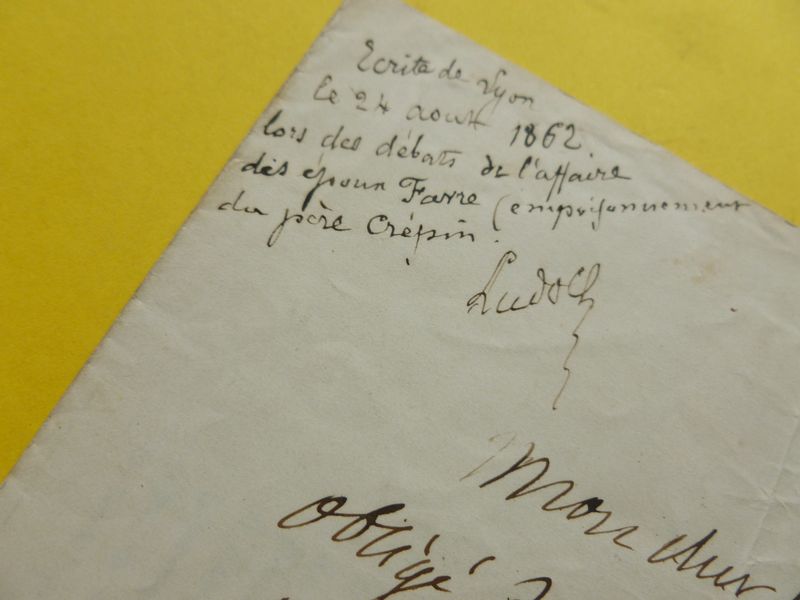 Ecrite de Lyon
le 24 aout 1862
lors des débats de l'affaire
des époux Favre (emprisonnement
du père Crépin.
Mon cher
obligé